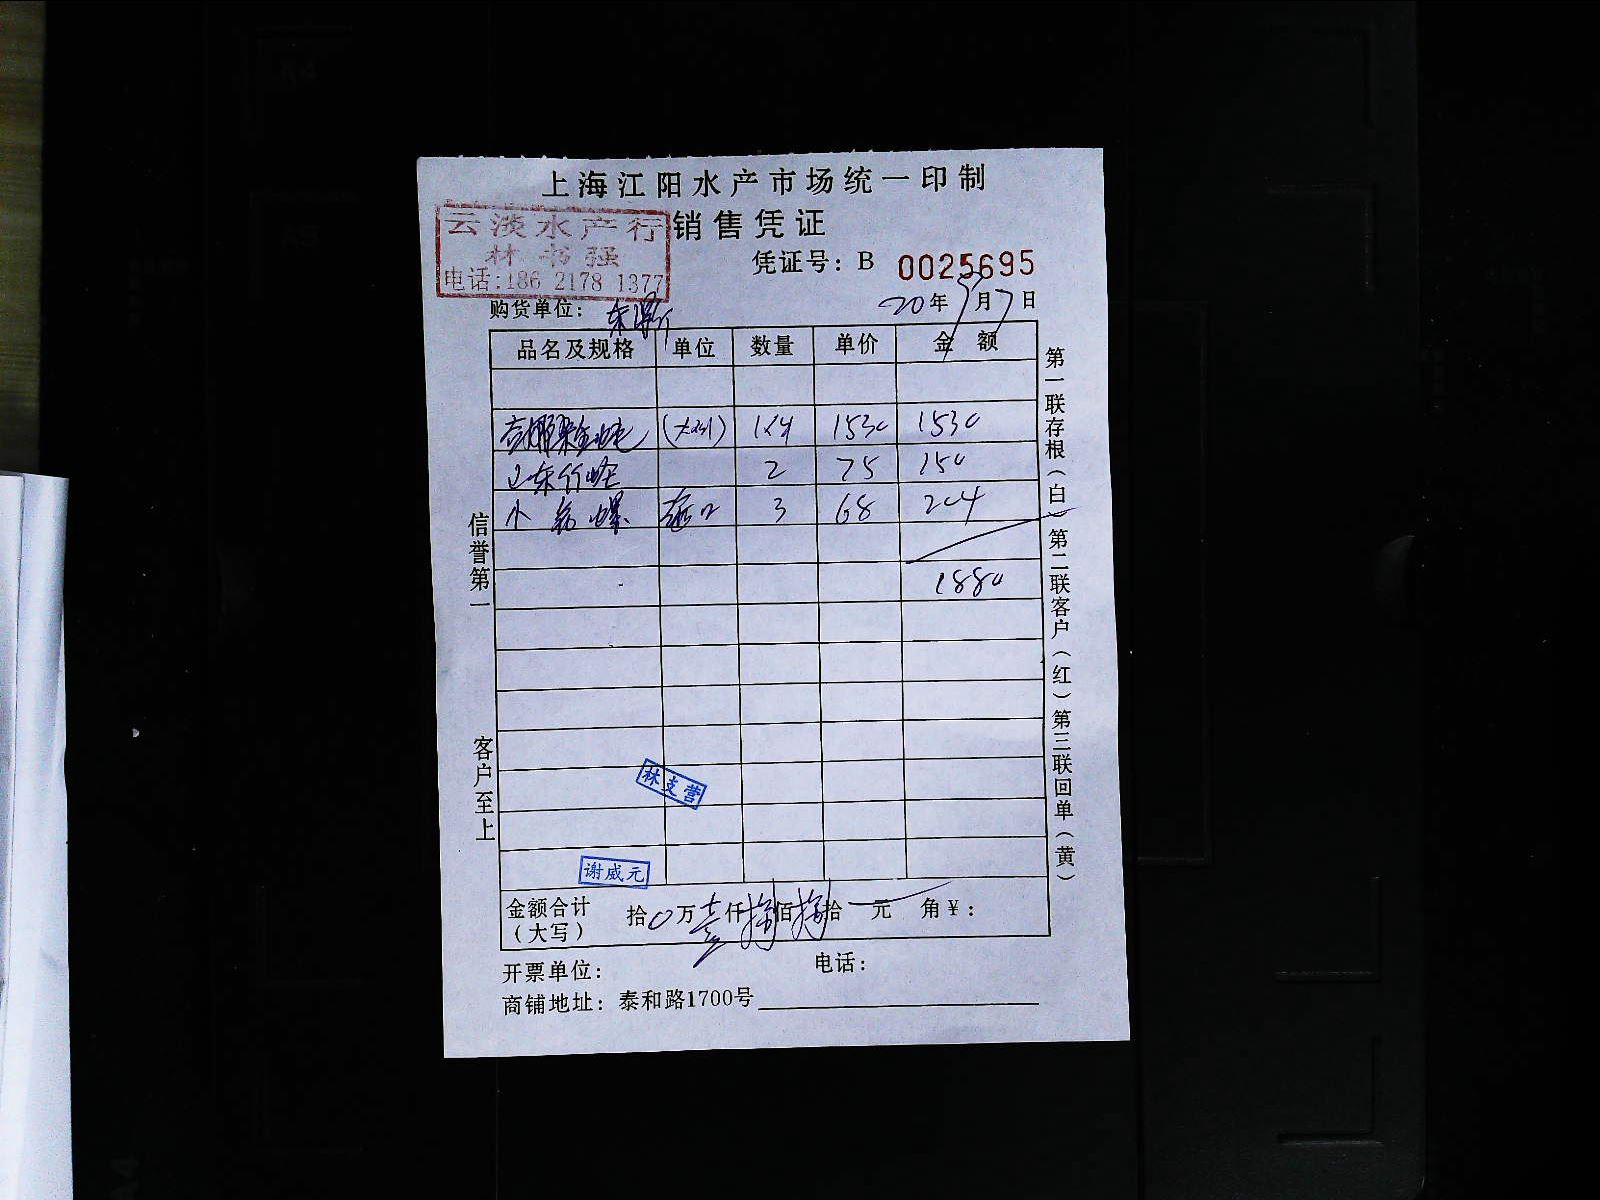 上海江阳水产市场统一印制
销售凭证
云淡水产行
林书强
电话:186 2178 1377
凭证号: B 0025695
购货单位:
20年9月7日
品名及规格 单位 数量 单价 金额
1530 1530
山东竹蛏 2 75 150
小 螺 3 68 204
1880
信誉第一
客户至上
第一联存根(白)第二联客户(红)第三联回单(黄)
林支营
谢威元
金额合计 拾0万壹仟捌佰捌拾 元 角¥:
(大写)
开票单位: 电话:
商铺地址: 泰和路1700号